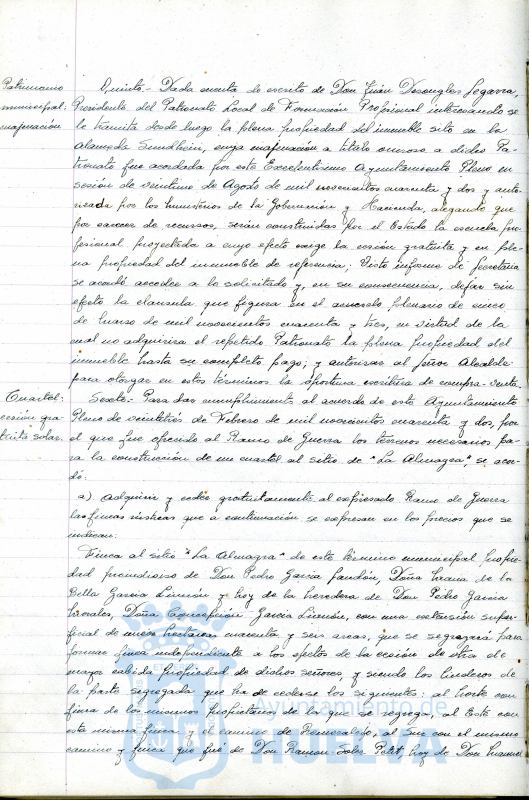 Patrimonio
municipal:
enajenación
Quinto.- Dada cuenta de escrito de Don Juan Desongles Segarra,
Presidente del Patronato Local de Formación Profesional interesando se
le tramita desde luego la plena propiedad del inmueble sito en la
Alameda Sundheim, cuya enajenación a título oneroso a dicho Pa-
tronato fue acordada por este Excelentísimo Ayuntamiento Pleno en
sesión de veintiuno de Agosto de mil novecientos cuarenta y dos y auto-
rizada por los Ministerios de la Gobernación y Hacienda, alegando que
por carecer de recursos, serán construidas por el Estado la escuela pro-
fesional proyectada a cuyo efecto exige la cesión gratuita y en ple-
na propiedad del inmueble de referencia; Visto informe de Secretaría
se acordó acceder a lo solicitado y, en su consecuencia, dejar sin
efecto la clausula que figura en el acuerdo plenario de cinco
de Marzo de mil novecientos cuarenta y tres, en virtud de la
cual no adquirira el repetido Patronato la plena propiedad del
inmueble hasta su completo pago; y autorizar al Señor Alcalde
para otorgar en estos términos la oportuna escritura de compra-venta.
Cuartel:
cesión gra-
tuita solar.
Sexto.- Para dar cumplimiento al acuerdo de este Ayuntamiento
Pleno de veintitrés de Febrero de mil novecientos cuarenta y dos, por
el que fue ofrecido al Ramo de Guerra los terrenos necesarios pa-
ra la construcción de un cuartel al sitio de "La Almagra", se acor-
dó:
a) Adquirir y ceder gratuitamente al expresado Ramo de Guerra
las fincas rústicas que a continuación se expresan en los precios que se
indican:
Finca al sitio "La Almagra" de este término municipal propie-
dad proindiviso de Don Pedro García Doña Maria de la
Bella García Limón y hoy de la heredera de Don Pedro García
Morales, Doña Concepción García Limón, con una extensión super-
ficial de hectáreas cuarenta y seis areas, que se segregará para
formar finca independiente a los efectos de la cesión de otra de
mayor cabida propiedad de dichos señores, y siendo los linderos de
la parte segregada que ha de cederse los siguientes: al Norte con
finca de los mismos propietarios de la que se segrega, al Este con
esta misma finca y el camino de al Sur con el mismo
camino y finca que fué de Don Ramon Soler hoy de Don Manuel
Ayuntamiento de
HUELVA